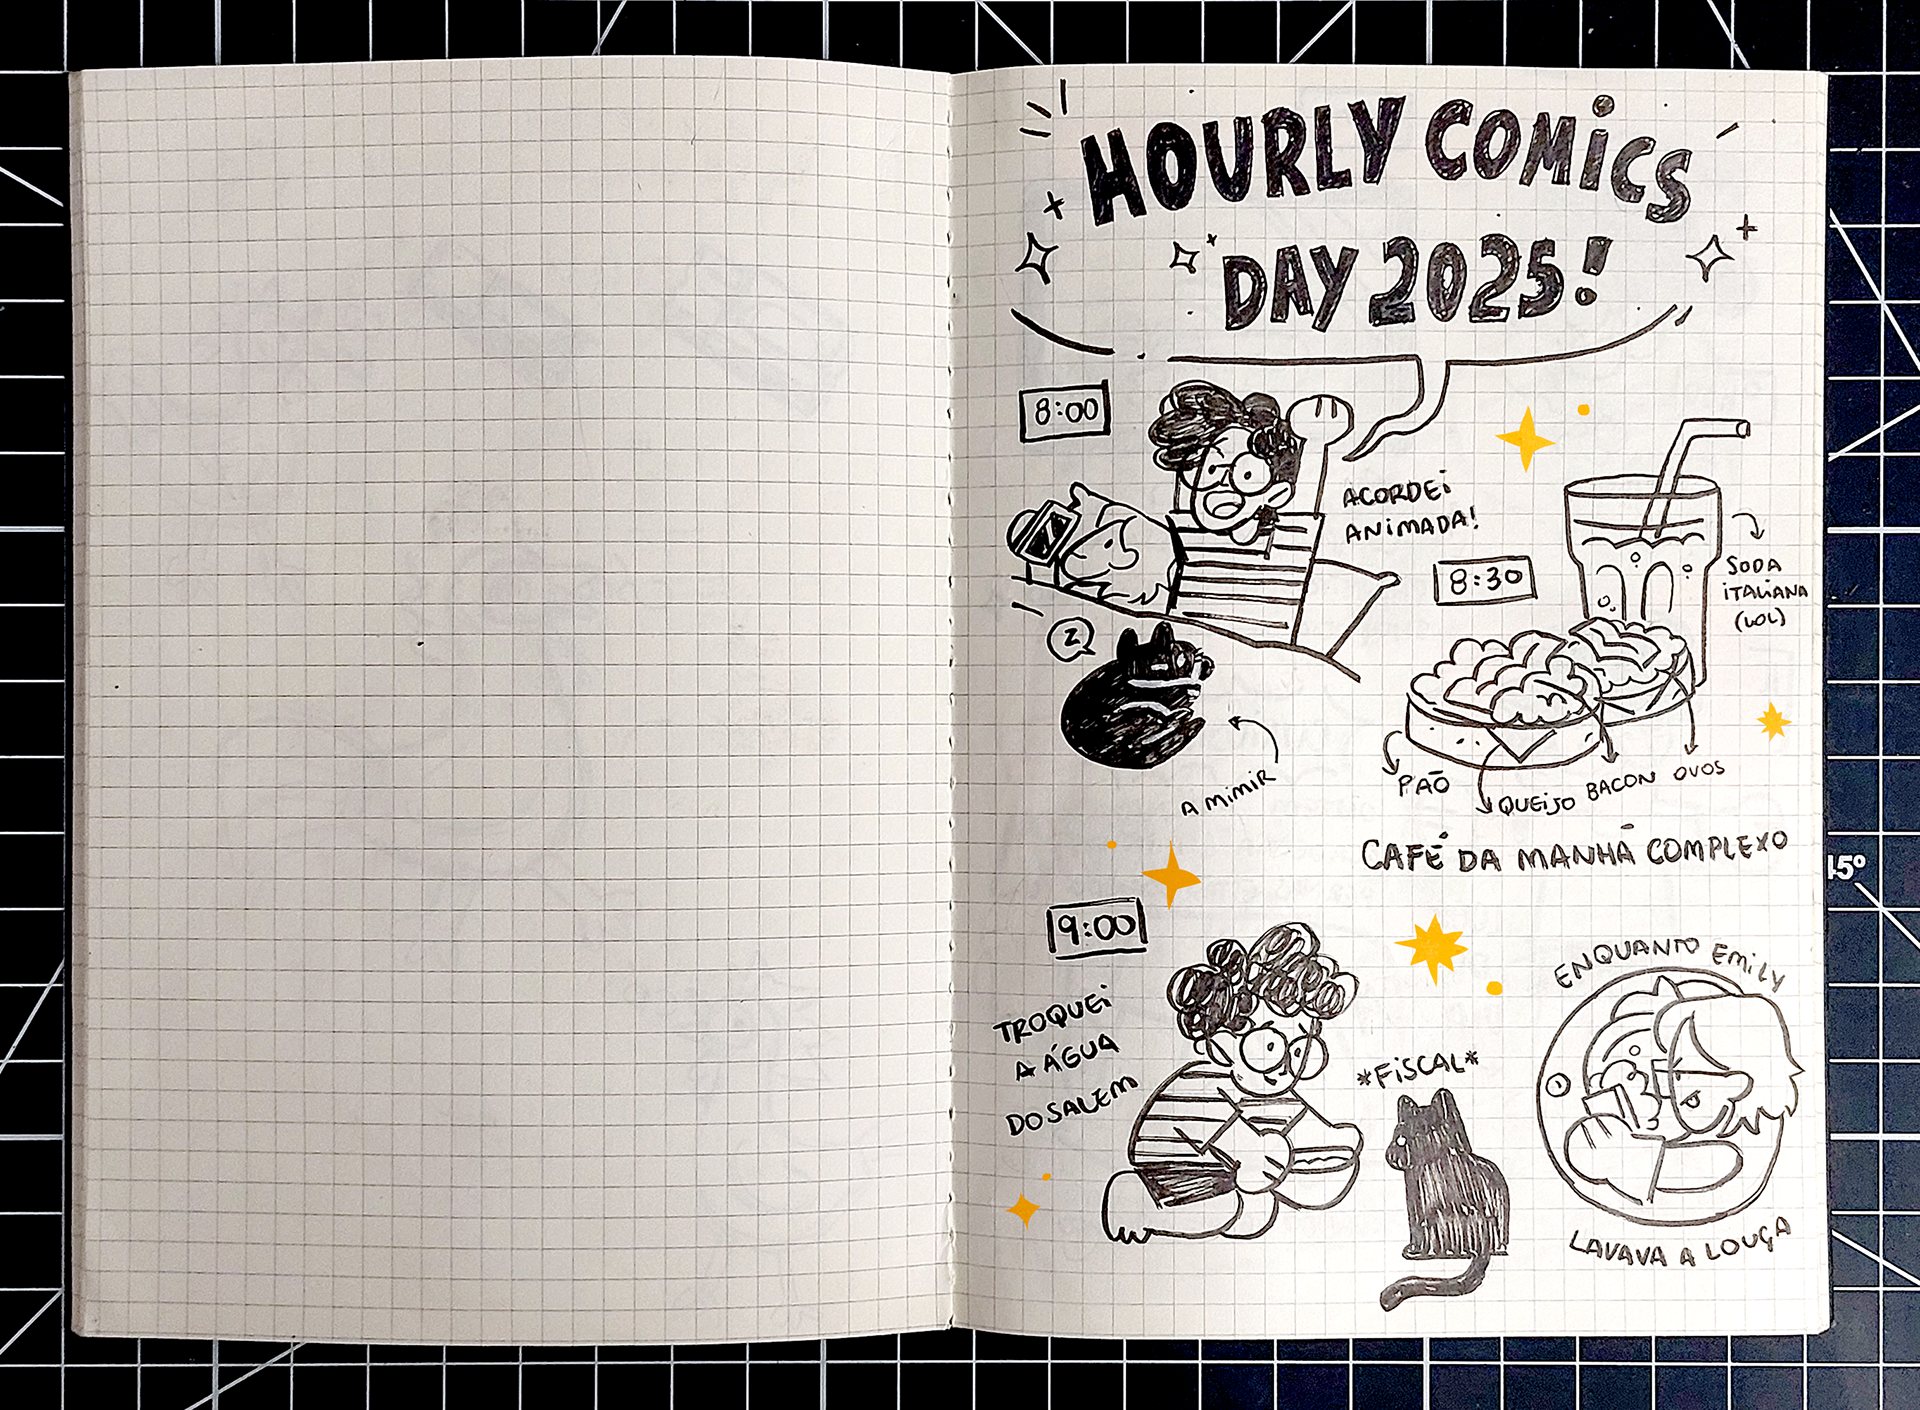 HOURLY COMiCS
DAY 2025!
8:00
ACORDEi
ANiMADA!
Z
A MiMiR
8:30
SODA
iTALiANA
(LOL)
PÃO
QUEiJO
BACON
OVOS
CAFÉ DA MANHÃ COMPLEXO
9:00
TROQUEi
A ÁGUA
DO SALEM
*FiSCAL*
ENQUANTO EMiLY
LAVAVA A LOUÇA
15°